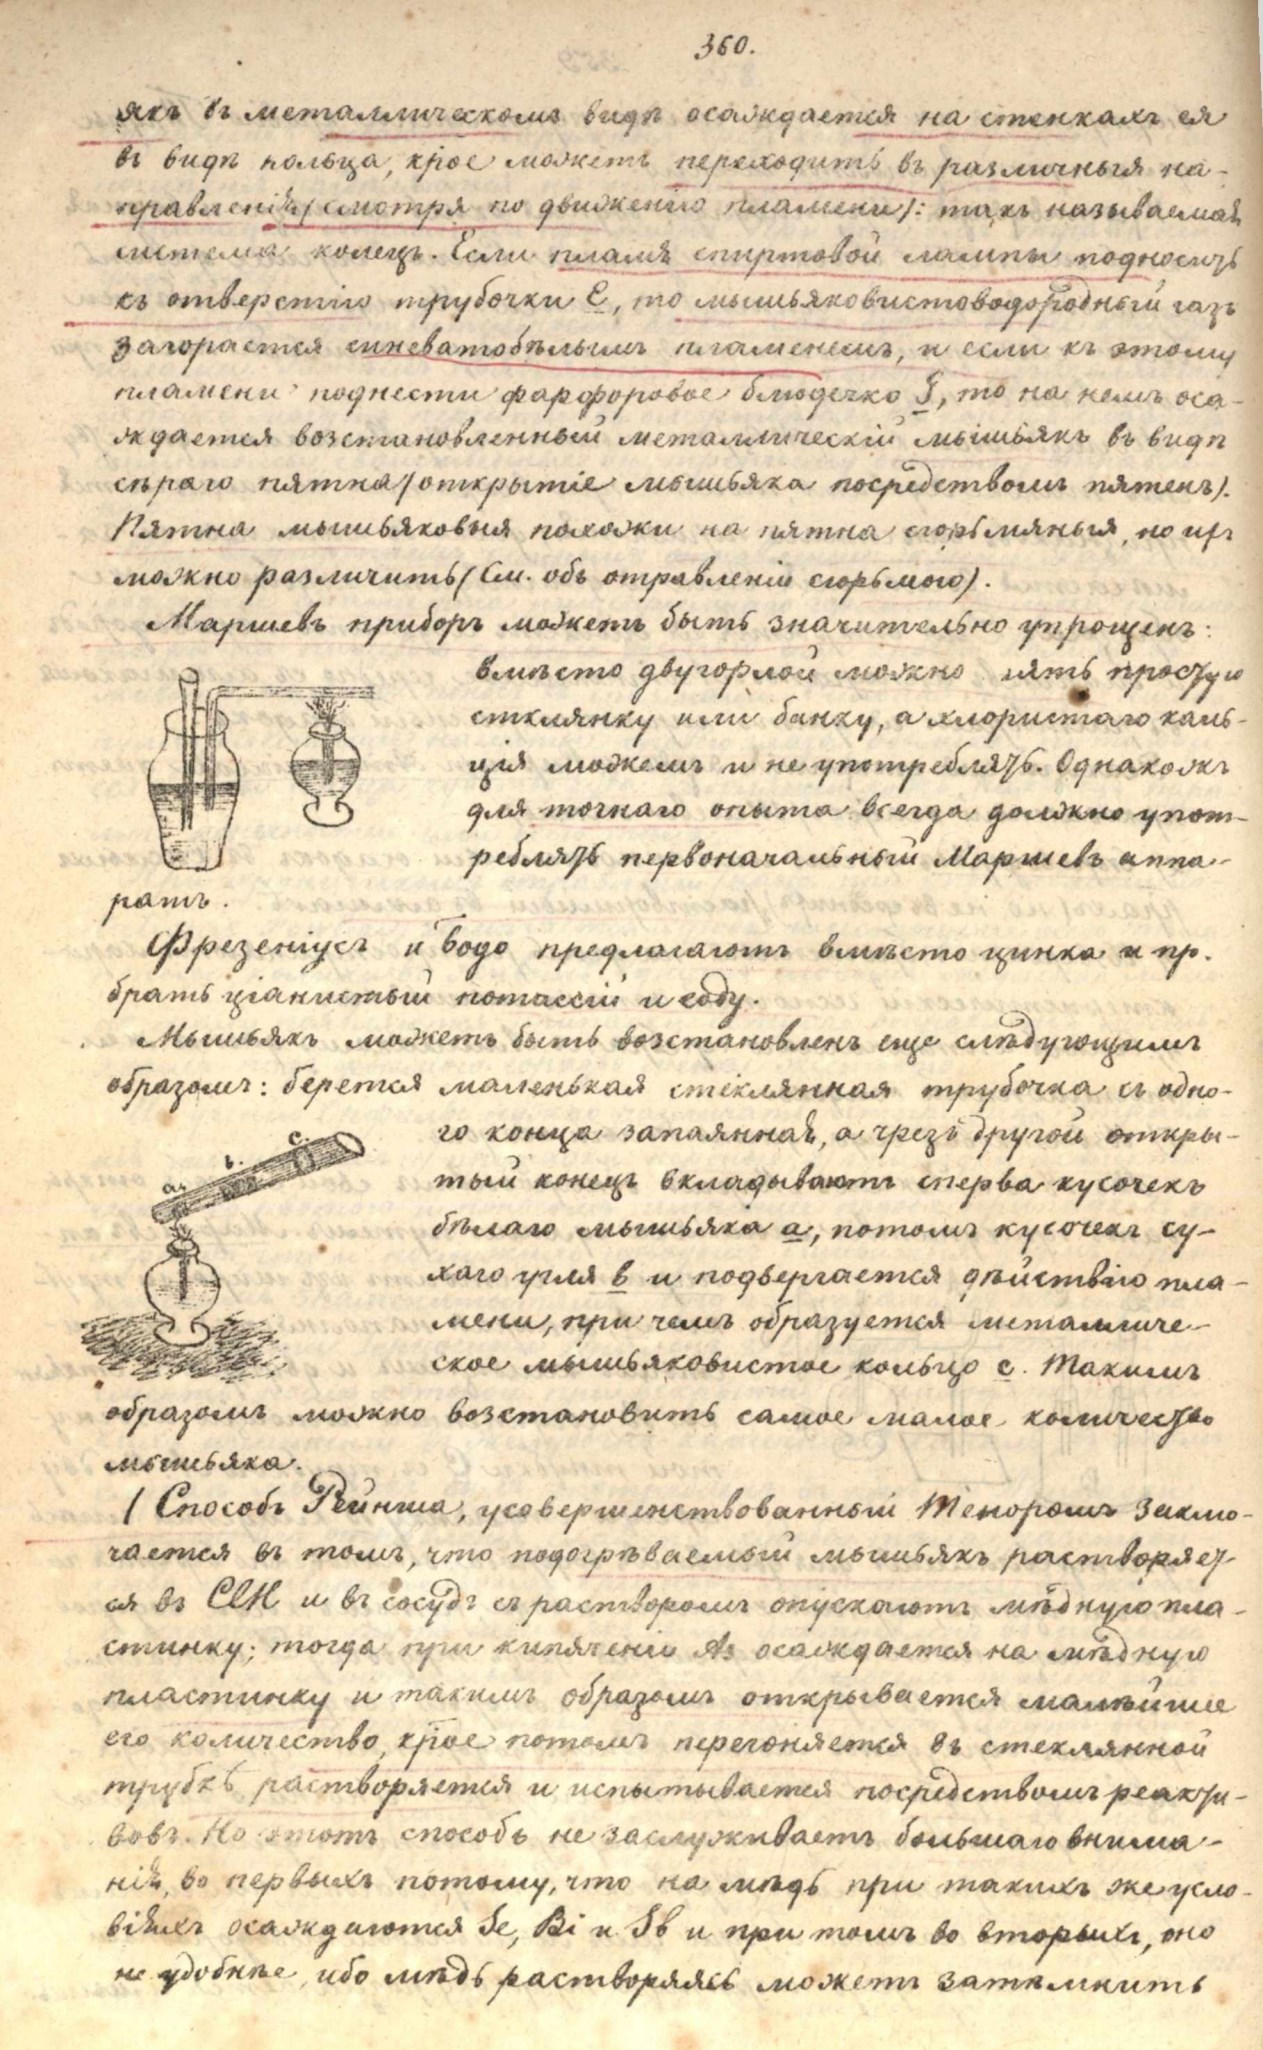 360.
якъ въ металлическомъ видѣ осаждается на стенкахъ ея
въ видѣ кольца, крое можетъ переходить въ различныя на-
правленія (смотря по движенію пламени): такъ называемая
система колецъ. Если пламя спиртовой лампы подносить
къ отверстію трубочки С, то мышьяковистоводородный газъ
загорается синеватобѣлымъ пламенемъ, и если къ этому
пламени поднести фарфоровое блюдечко, то на немъ оса-
ждается возстановленный металлическій мышьякъ въ видѣ
сѣраго пятна (открытіе мышьяка посредствомъ пятенъ).
Пятна мышьяковыя похожи на пятна сюрьмяныя, но ихъ
можно различить (См. объ отравленіи сюрьмою).
Маршевъ приборъ можетъ быть значительно упрощенъ:
вмѣсто двугорлой можно простую
стклянку или банку, а хлористаго каль-
ція можемъ и не употреблять. Однакожъ
для точнаго опыта всегда должно упот-
реблять первоначальный Маршевъ аппа-
ратъ.
Фрезеніусъ и Бодо предлагаютъ вмѣсто цинка и пр.
брать ціанистый потассій и соду.
Мышьякъ можетъ быть возстановленъ еще слѣдующимъ
образомъ: берется маленькая стеклянная трубочка съ одно-
го конца запаянная, а чрезъ другой откры-
тый конецъ вкладываютъ сперва кусочекъ
бѣлаго мышьяка а, потомъ кусочекъ су-
хаго угля в и подвергается дѣйствію пла-
мени, при чемъ образуется металличе-
ское мышьяковистое кольцо с. Такимъ
a.
в.
c.
образомъ можно возстановить самое малое количество
мышьяка.
( Способъ Рейнша, усовершенствованный Теноромъ заклю-
чается въ томъ, что подогрѣваемый мышьякъ растворяет-
ся въ ClH и въ сосудъ съ растворомъ опускаютъ мѣдную пла-
стинку; тогда при кипяченіи As осаждается на мѣдную
пластинку и такимъ образомъ открывается малѣйшее
его количество, крое потомъ перегоняется въ стеклянной
трубкѣ растворяется и испытывается посредствомъ реакти-
вовъ. Но этотъ способъ не заслуживаетъ большаго внима-
нія, во первыхъ потому, что на мѣдь при такихъ же усло-
віяхъ осаждаются Se, Bi и Sb и при томъ во вторыхъ, оно
не удобнѣе, ибо мѣдь растворяясь можетъ затемнить